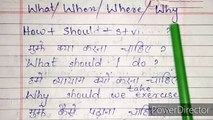 What/When/Where/Why
How + should + s + vi ......?
मुझे क्या करना चाहिए ?
What should I do ?
हमें व्यायाम क्यों करना चाहिए
Why should we take exercise
मुझे कैसे पढ़ना चाहिए
PowerDirector